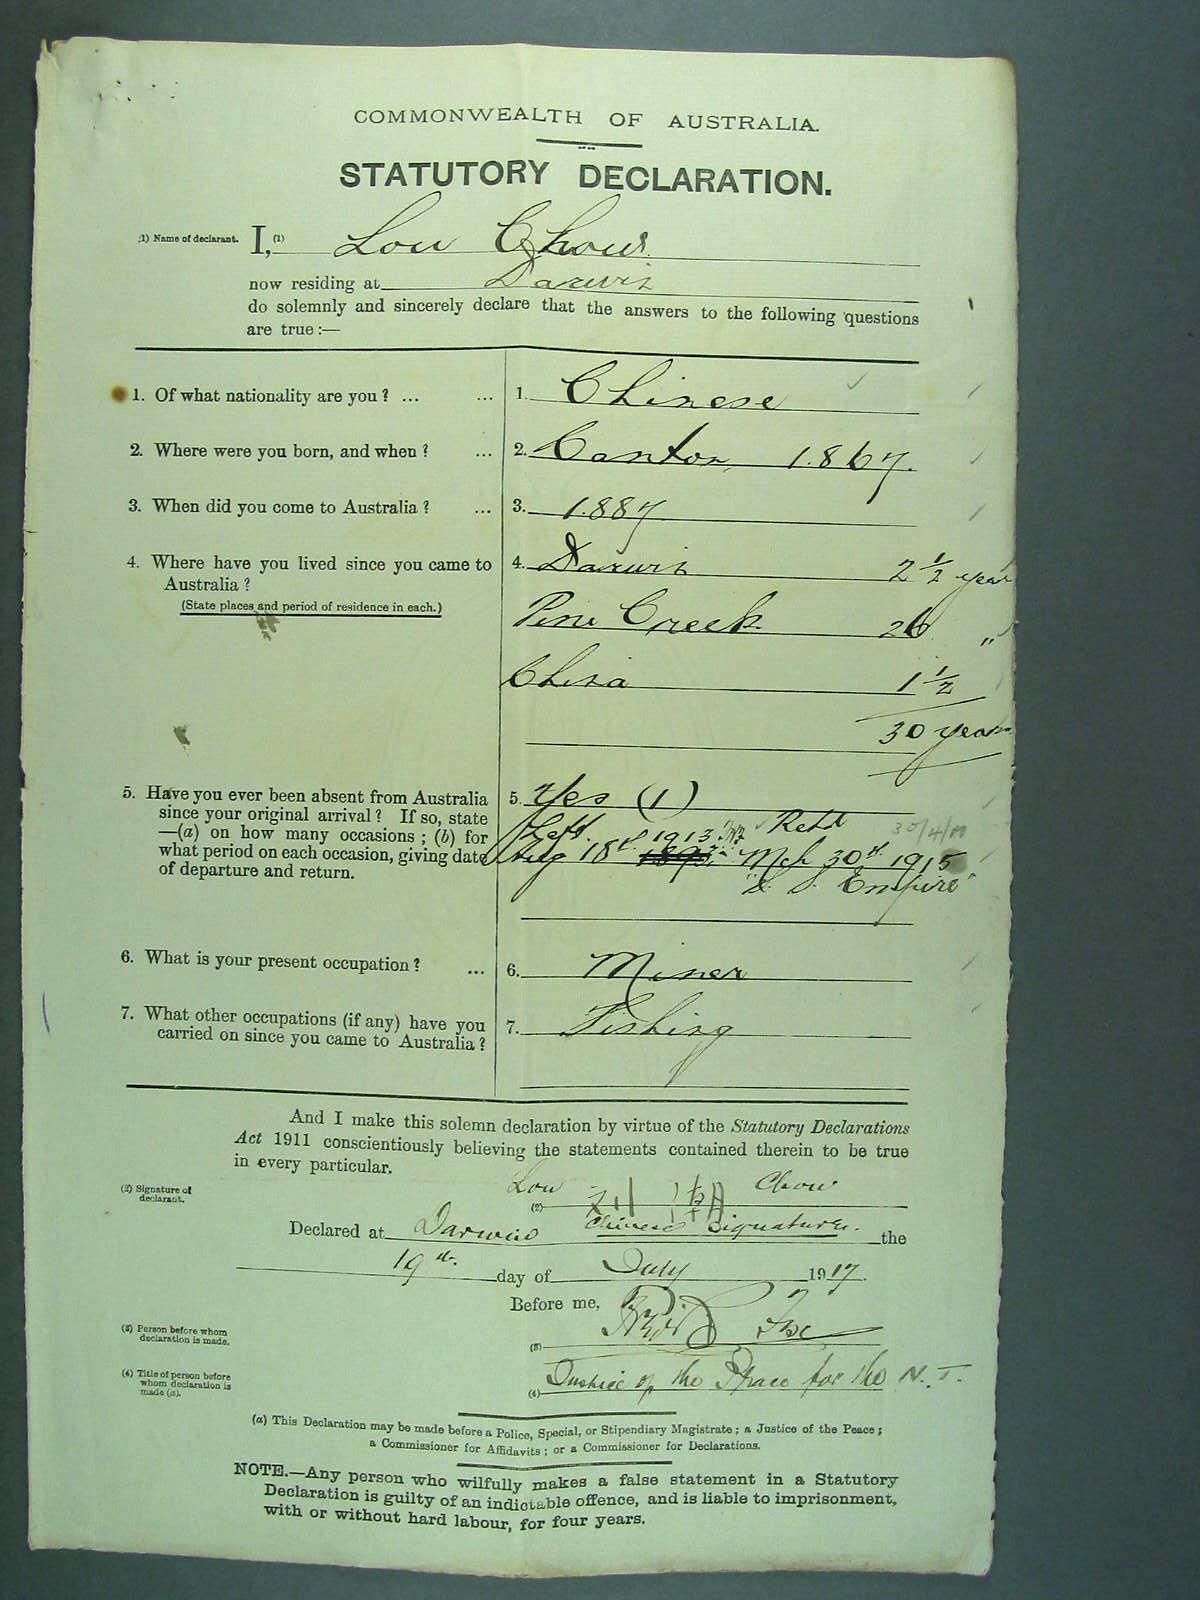 COMMONWEALTH OF AUSTRALIA.
STATUTORY DECLARATION.
(1) Name of declarant. I, (1) Lou Chow
now residing at Darwin
do solemnly and sincerely declare that the answers to the following questions
are true :—
1. Of what nationality are you ? ... ... 1. Chinese
2. Where were you born, and when ? ... 2. Canton, 1867.
3. When did you come to Australia ? ... 3. 1887
4. Where have you lived since you came to 4. Darwin 2 ½ year
Australia ?
(State places and period of residence in each.)
Pine Creek 26 "
China 1 ½
30 years
5. Have you ever been absent from Australia 5. Yes (1)
since your original arrival ? If so, state
—(a) on how many occasions ; (b) for
what period on each occasion, giving date
of departure and return.
Left 1913 Retd
Aug 18th Mch 30th 1915
"S. S. Empire"
6. What is your present occupation ? ... 6. Miner
7. What other occupations (if any) have you 7. Fishing
carried on since you came to Australia ?
And I make this solemn declaration by virtue of the Statutory Declarations
Act 1911 conscientiously believing the statements contained therein to be true
in every particular.
(2) Signature of
declarant.
Lou Chow
(2)
Chinese Signature.
Declared at Darwin the
19th. day of July 1917.
Before me,
(3) Person before whom
declaration is made.
(3)
(4) Title of person before
whom declaration is
made (a).
(4) Justice of the Peace for the N. T.
(a) This Declaration may be made before a Police, Special, or Stipendiary Magistrate ; a Justice of the Peace ;
a Commissioner for Affidavits ; or a Commissioner for Declarations.
NOTE.—Any person who wilfully makes a false statement in a Statutory
Declaration is guilty of an indictable offence, and is liable to imprisonment,
with or without hard labour, for four years.